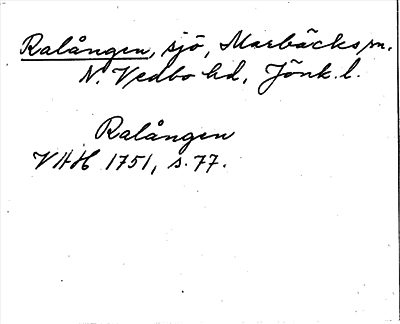 Ralången, sjö, Marbäcks sn.
N. Vedbo hd, Jönk. l.
Ralången
VHH 1751, s. 77.